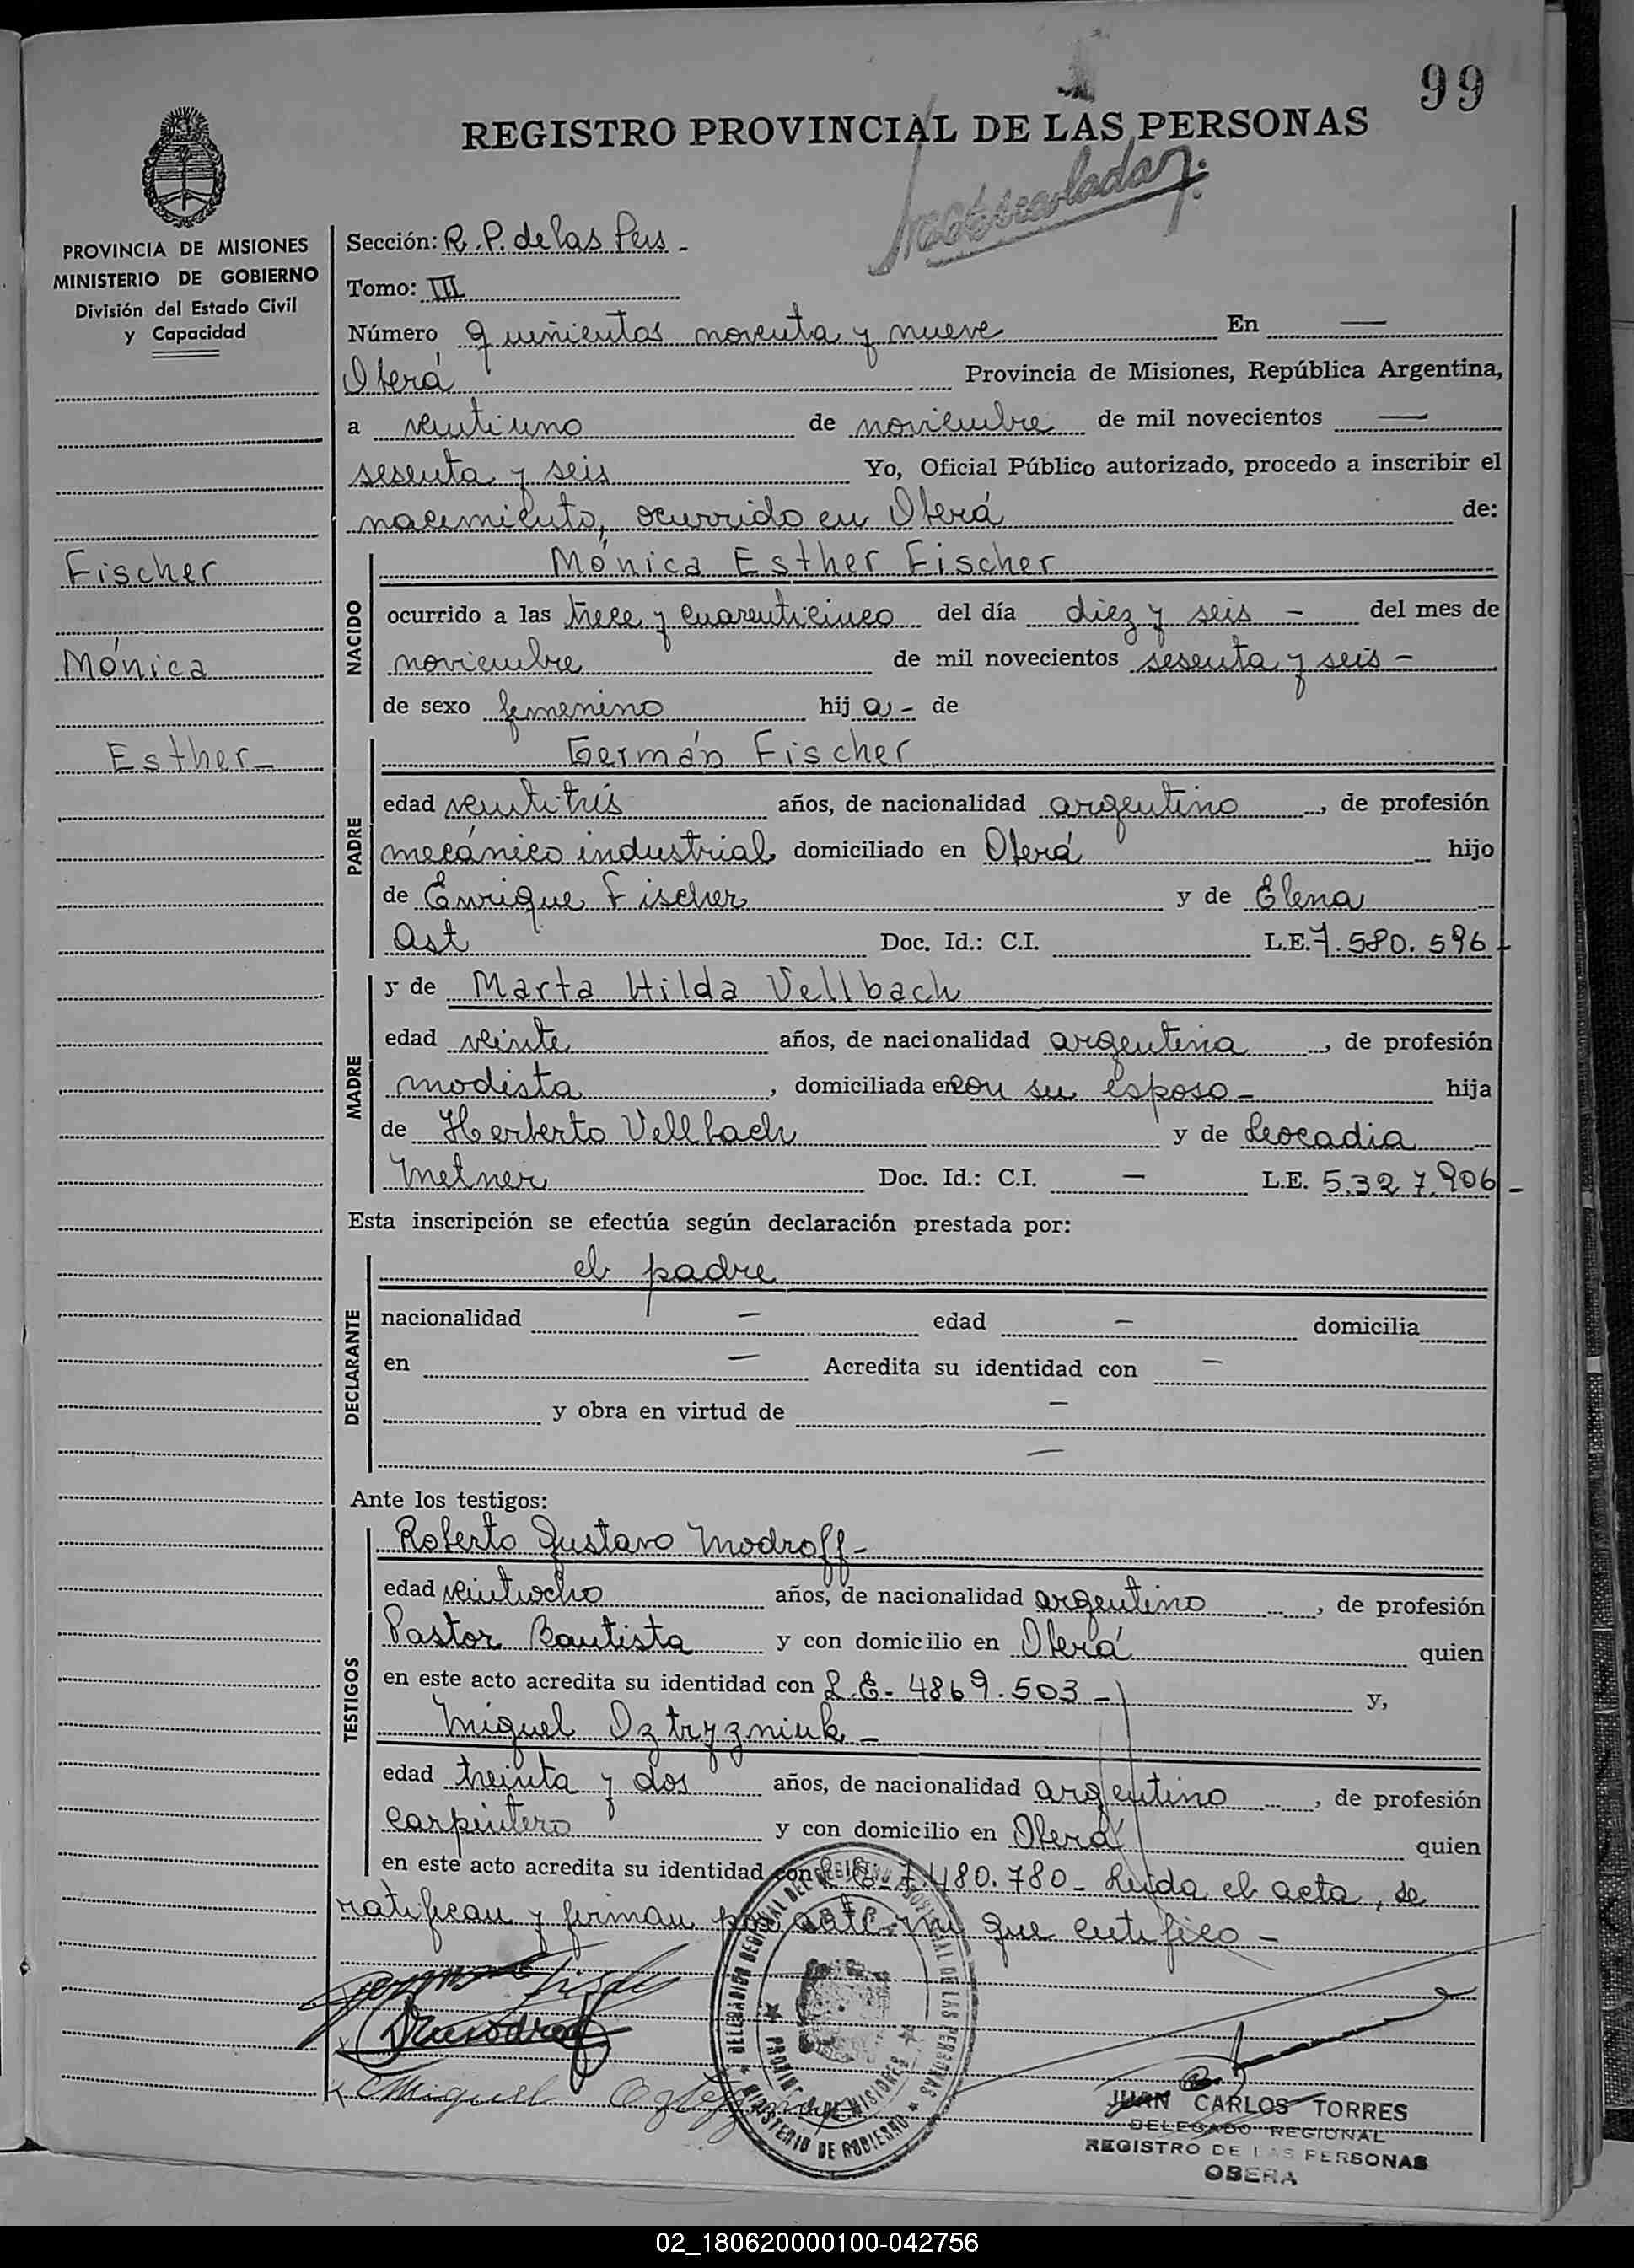 99
REGISTRO PROVINCIAL DE LAS PERSONAS
PROVINCIA DE MISIONES
MINISTERIO DE GOBIERNO
División del Estado Civil
y Capacidad
Fischer
Mónica
Esther-
Sección: R. P. de las Pers -
Tomo: III
Número quinientos noventa y nueve En —
Oberá Provincia de Misiones, República Argentina,
a veintiuno de noviembre de mil novecientos —
sesenta y seis Yo, Oficial Público autorizado, procedo a inscribir el
nacimiento, ocurrido en Oberá de:
NACIDO
Mónica Esther Fischer
ocurrido a las trece y cuarenticinco del día diez y seis - del mes de
noviembre de mil novecientos sesenta y seis -
de sexo femenino hij a - de
PADRE
Germán Fischer
edad veintitrés años, de nacionalidad argentino, de profesión
mecánico industrial domiciliado en Oberá hijo
de Enrique Fischer y de Elena
Ast Doc. Id.: C.I. L.E. 7.580.596 -
MADRE
y de Marta Hilda Vellbach
edad veinte años, de nacionalidad argentina, de profesión
modista, domiciliada en con su esposo - hija
de Herberto Vellbach y de Leocadia
Melner Doc. Id.: C.I. — L.E. 5.327.906 -
Esta inscripción se efectúa según declaración prestada por:
DECLARANTE
el padre
nacionalidad — edad — domicilia
en — Acredita su identidad con —
y obra en virtud de —
—
Ante los testigos:
TESTIGOS
Roberto Gustavo Modroff -
edad veintiocho años, de nacionalidad argentino, de profesión
Pastor Bautista y con domicilio en Oberá quien
en este acto acredita su identidad con L.E. - 4869.503 - y,
Miguel Oztryzniuk -
edad treinta y dos años, de nacionalidad argentino, de profesión
carpintero y con domicilio en Oberá quien
en este acto acredita su identidad con 7.480.780 - Leida el acta, se
ratifican y firman por ante mi que certifico -
DELEGACION REGIONAL DEL REGISTRO PROVINCIAL DE LAS PERSONAS
OBERA
PROVINCIA DE MISIONES
MINISTERIO DE GOBIERNO
Miguel
JUAN CARLOS TORRES
DELEGADO REGIONAL
REGISTRO DE LAS PERSONAS
OBERA
02_180620000100-042756